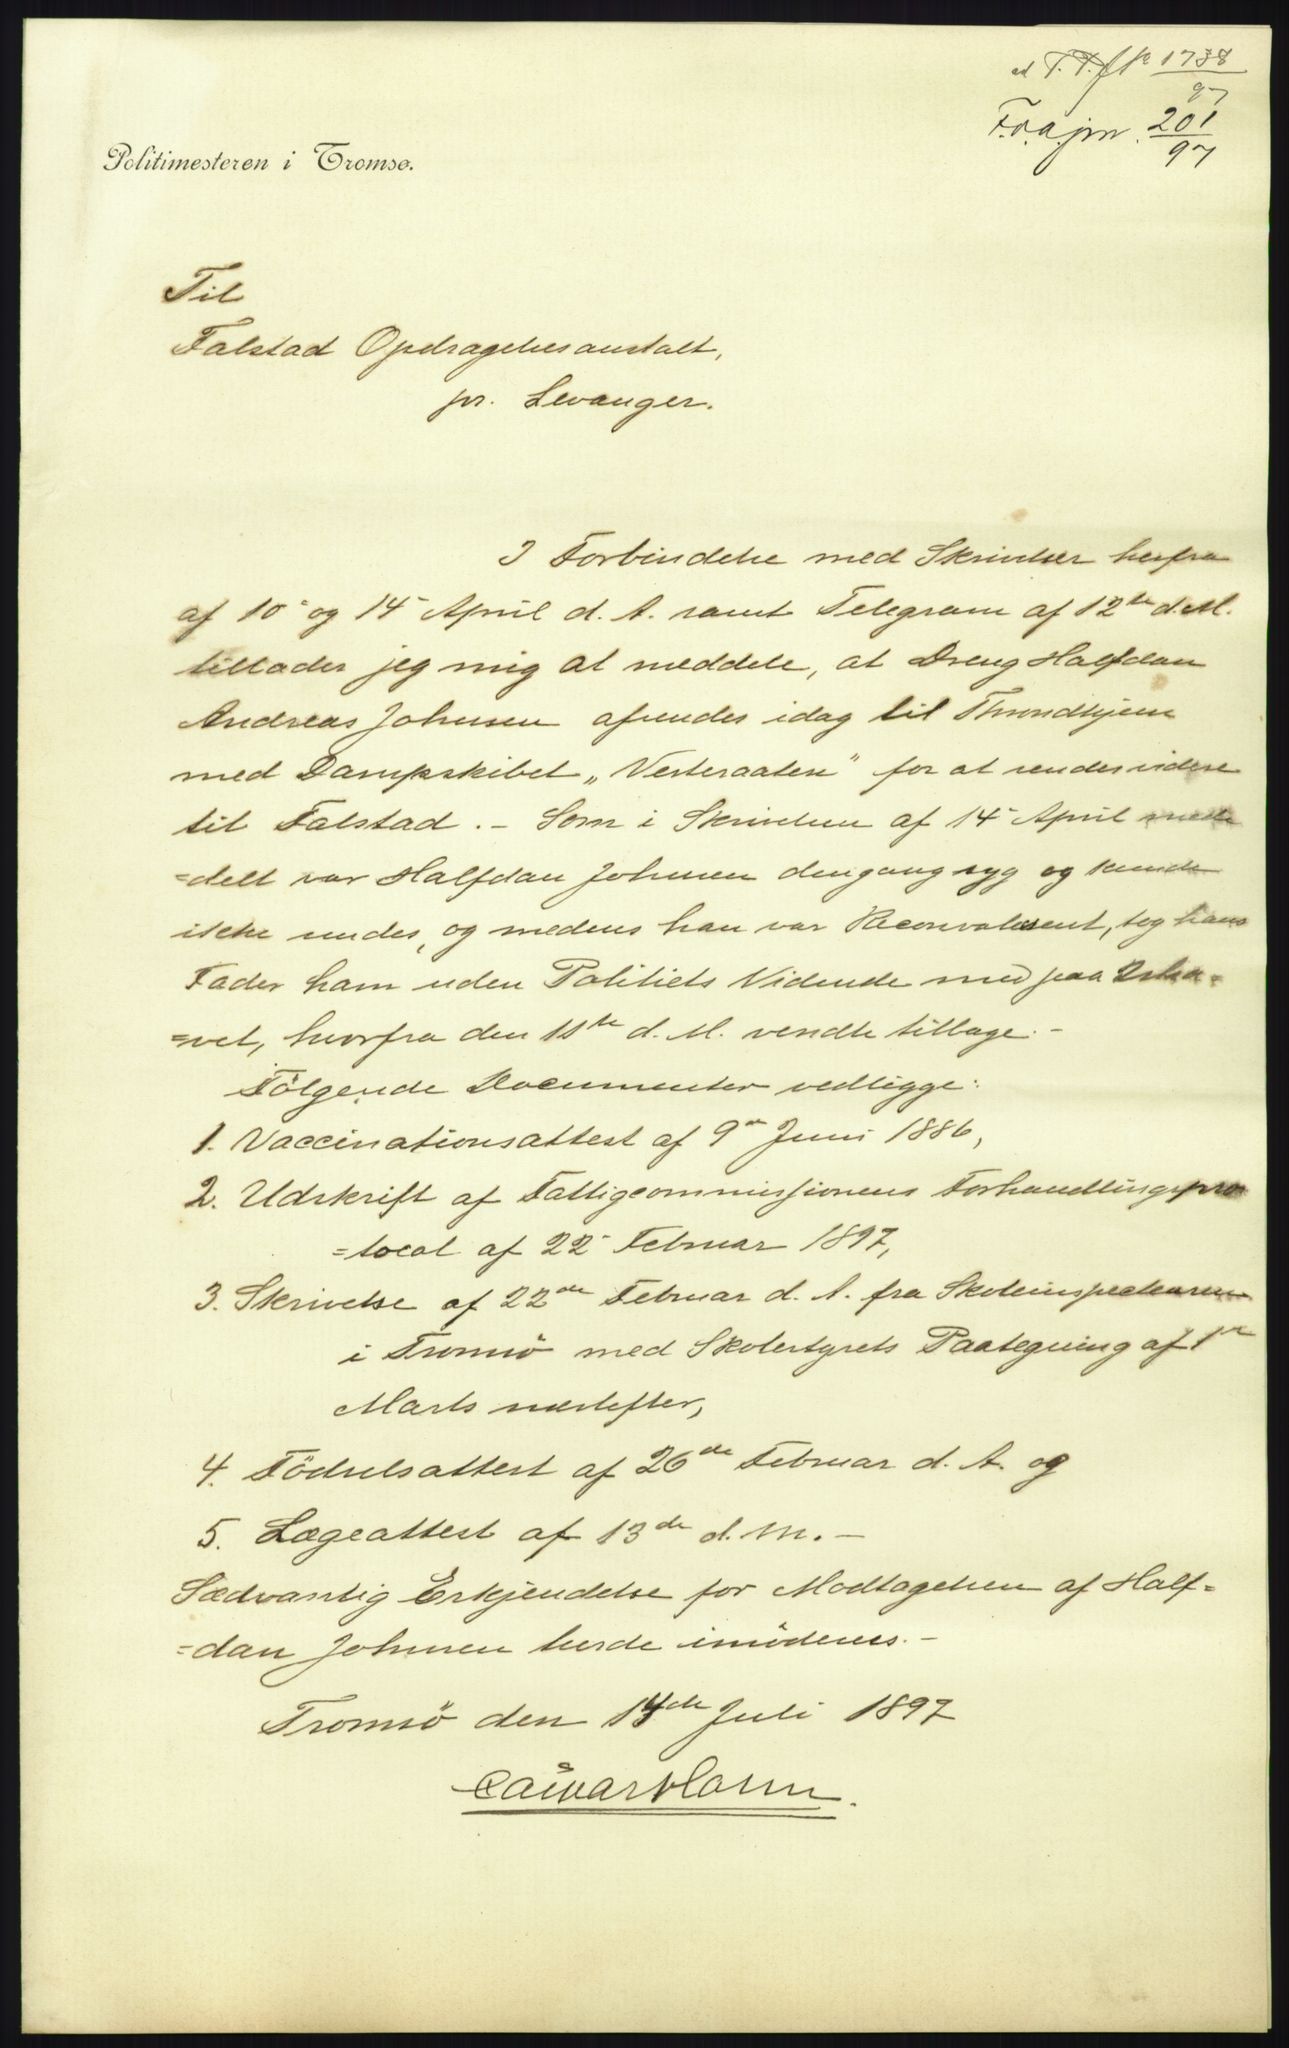 1738
97
F.o.a.jm. 201
97
Politimesteren i Tromsø.
Til
Falstad Opdragelsesanstalt,
pr. Levanger.
I Forbindelse med Skrivelser herfra
af 10- og 14- April d. A. samt Telegram af 12te d. M.
tillader jeg mig at meddele, at Dreng Halfdan
Andreas Johnsen afsendes idag til Throndhjem
med Dampskibet „Vesteraalen" for at sendes videre
til Falstad. - Som i Skrivelsen af 14- April med
=delt var Halfdan Johnsen dengang syg og kunde
ikke sendes, og medens han var Reconvalesent, tog hans
Fader ham uden Politiets Vidende med paa Isha-
=vet, hvorfra den 11te d. M. vendte tilbage. -
Følgende Documenter vedligge:
1. Vaccinationsattest af 9de Juni 1886,
2. Udskrift af Fattigcommissjonens Forhandlingspro
=tocol af 22- Februar 1897,
3. Skrivelse af 22de Februar d. A. fra Skoleinspecteuren
i Tromsö med Skolestyrets Paategning af 1ste
Marts næstefter,
4. Födselsattest af 26de Februar d. A. og
5. Lægeattest af 13de d. M. -
Sædvanlig Erkjendelse for Modtagelsen af Half=
=dan Johnsen turde imödesees. -
Tromsö den 14de Juli 1897